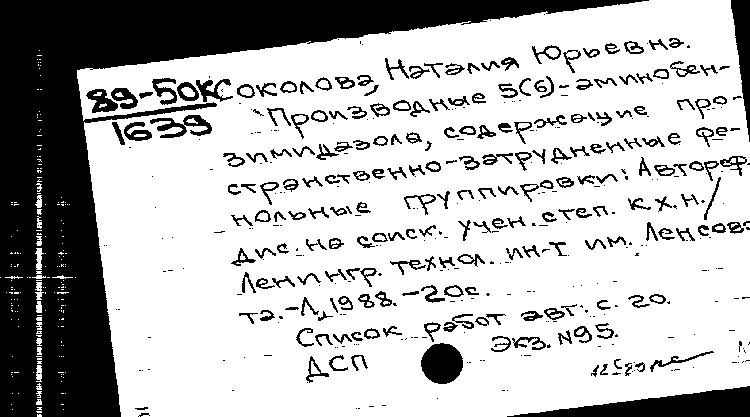 89-50К
1639
Соколова, Наталия Юрьевна.
Производные 5(6)-аминобен-
зимидазола, содержащие про-
странственно-затрудненные фе-
нольные группировки: Автореф.
дис. на соиск. учен. степ. к.х.н./
Ленингр. технол. ин-т им. Ленсове-
та.-Л., 1988.-20с.
Список работ авт: с. 20.
ДСП Экз. N95.